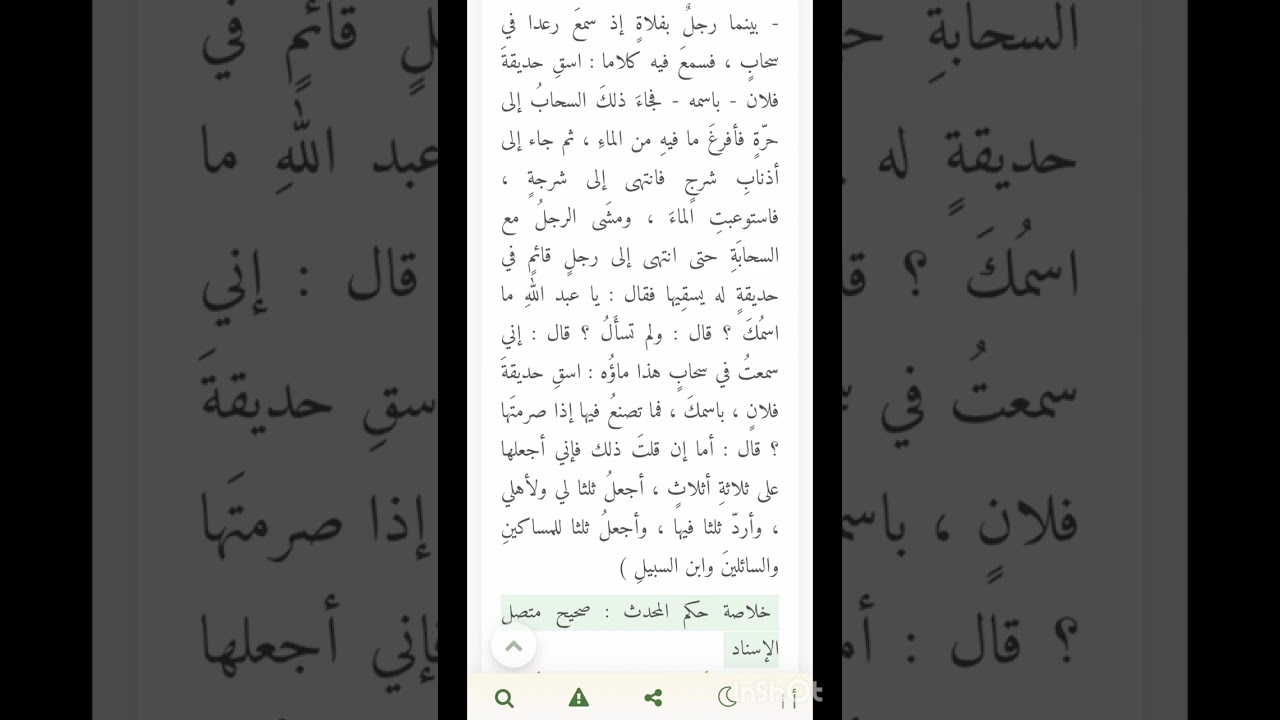 - بينما رجلٌ بفلاةٍ إذ سمعَ رعدا في
سحابٍ ، فسمعَ فيه كلاما : اسقِ حديقةَ
فلان - باسمه - فجاءَ ذلكَ السحابُ إلى
حرّةٍ فأفرغَ ما فيهِ من الماءِ ، ثم جاء إلى
أذنابِ شرجٍ فانتهى إلى شرجةٍ ،
فاستوعبتِ الماءَ ، ومشَى الرجلُ مع
السحابَةِ حتى انتهى إلى رجلٍ قائمٍ في
حديقةٍ له يسقِيها فقال : يا عبد اللهِ ما
اسمُكَ ؟ قال : ولم تسأَلُ ؟ قال : إني
سمعتُ في سحابٍ هذا ماؤُه : اسقِ حديقةَ
فلانٍ ، باسمكَ ، فما تصنعُ فيها إذا صرمتَها
؟ قال : أما إن قلتَ ذلك فإني أجعلها
على ثلاثةِ أثلاثٍ ، أجعلُ ثلثا لي ولأهلي
، وأردّ ثلثا فيها ، وأجعلُ ثلثا للمساكينِ
والسائلينَ وابن السبيلِ )
خلاصة حكم المحدث : صحيح متصل
الإسناد
InShOt